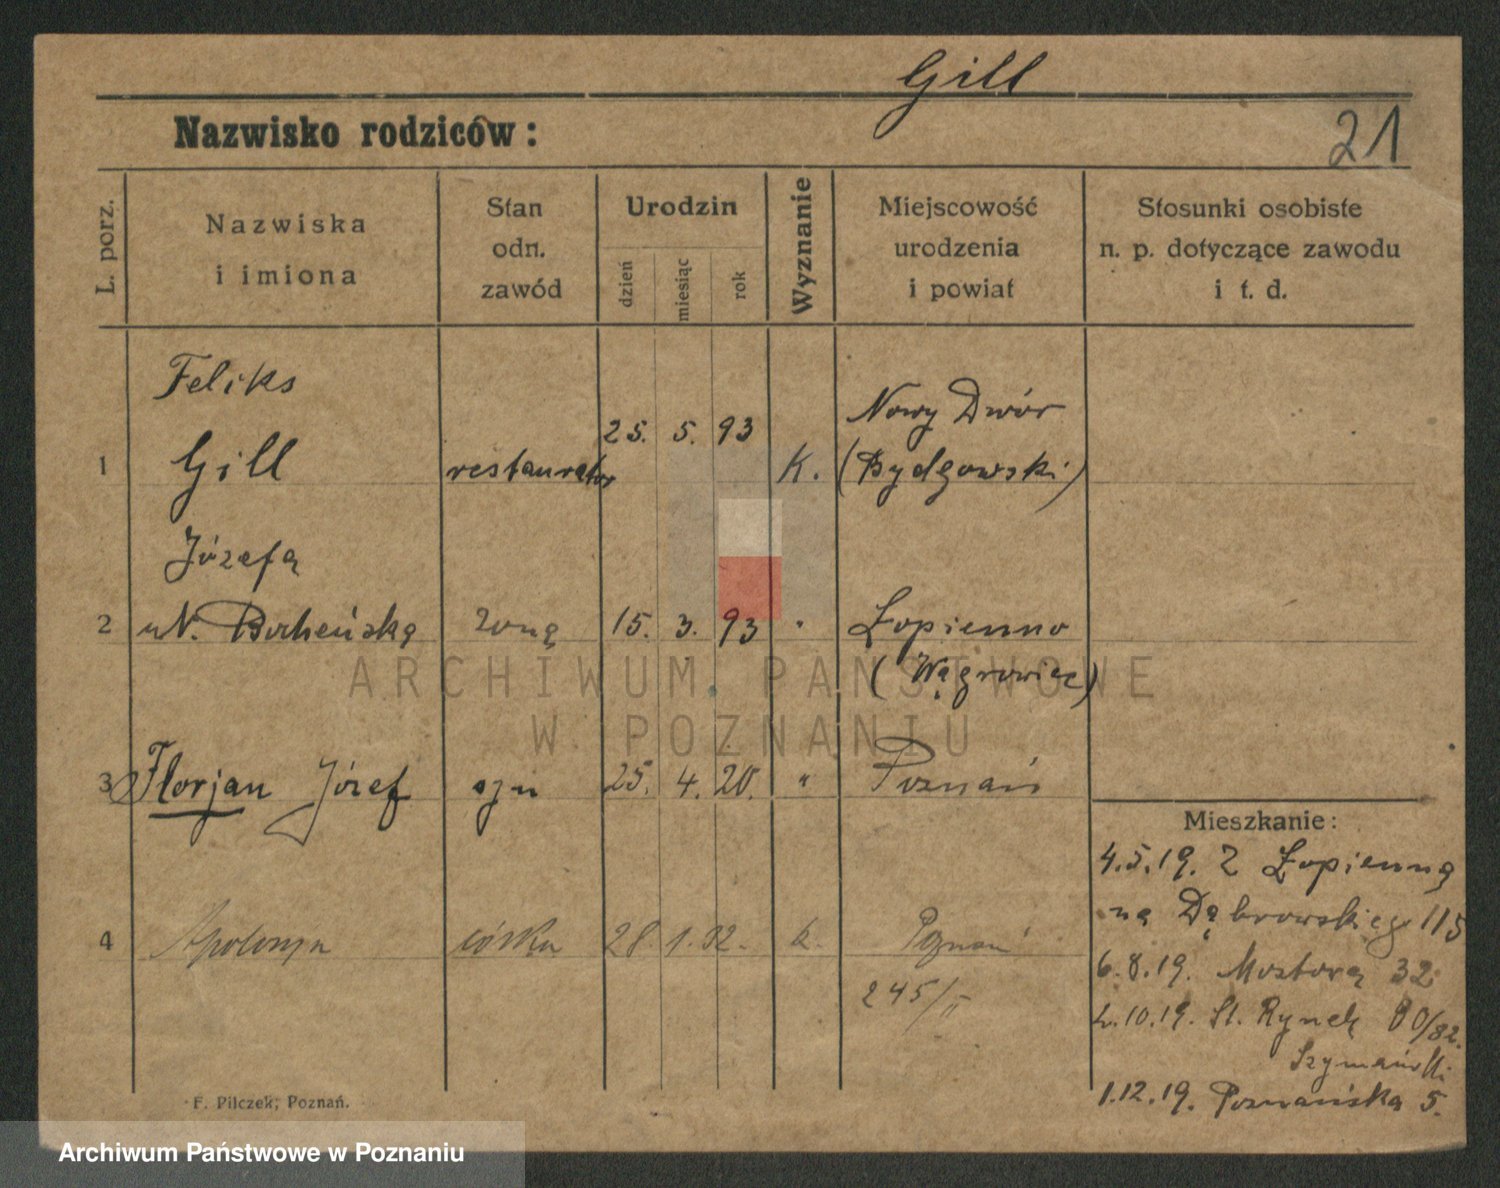 Gill
Nazwisko rodziców:
21
L. porz.
Nazwiska
i imiona
Stan
odn.
zawód
Urodzin
dzień
miesiąc
rok
Wyznanie
Miejscowość
urodzenia
i powiat
Stosunki osobiste
n. p. dotyczące zawodu
i t. d.
Feliks
1 Gill restaurator 25. 5. 93 K.
Nowy Dwór
(Bydgowski)
Józefa
2 Bocheńska żona 15. 3. 93 " Łopienno
(Wągrowiec)
3 Florjan Józef syn 25. 4. 20. " Poznań
4 Apolonja córka 28 1. 32. k. Poznań
245/II
Mieszkanie:
4.5.19. Z Łopienna
na Dąbrowskiego 115
6.8.19. Mostowa 32
2.10.19. St. Rynek 80/82.
Szymański
1.12.19. Poznańska 5.
F. Pilczek, Poznań.
ARCHIWUM PAŃSTWOWE
W POZNANIU
Archiwum Państwowe w Poznaniu